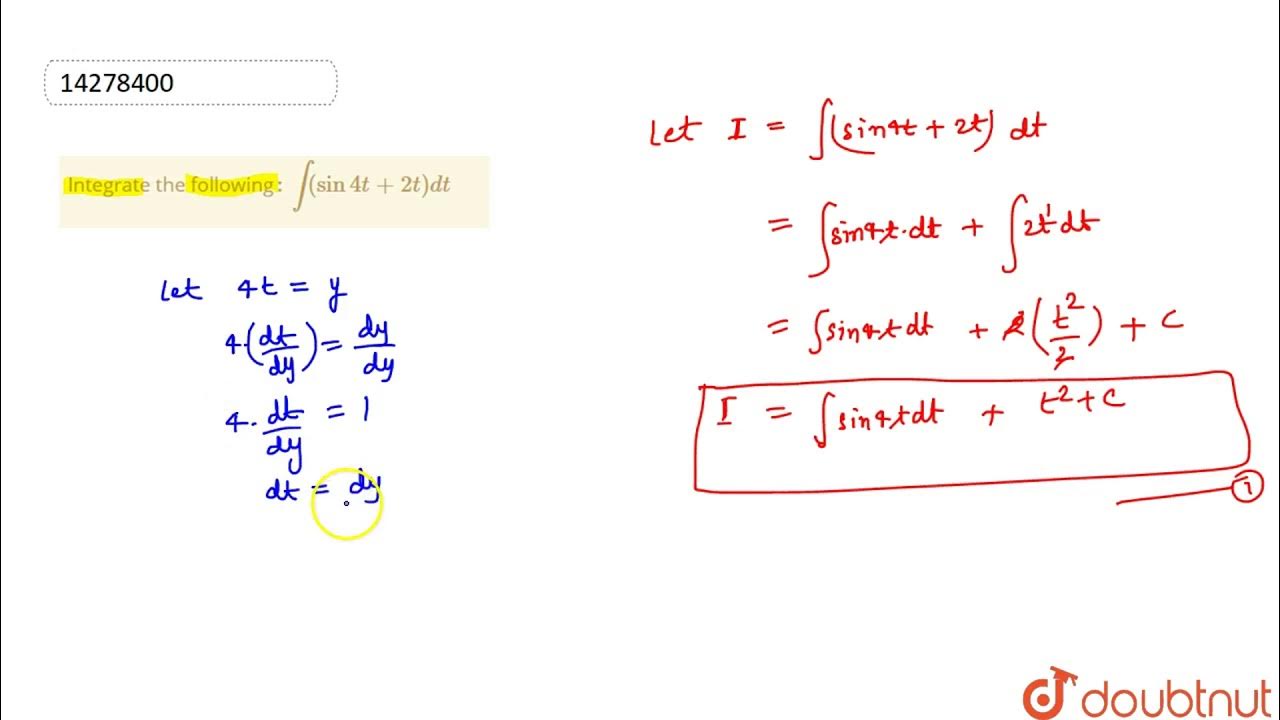 14278400
Integrate the following: ∫(sin 4t + 2t)dt
Let 4t = y
4·(dt/dy) = dy/dy
4·dt/dy = 1
dt = dy
Let I = ∫(sin4t + 2t) dt
= ∫sin4t·dt + ∫2t¹dt
= ∫sin4t dt + 2(t²/2) + C
I = ∫sin4tdt + t² + C
①
doubtnut